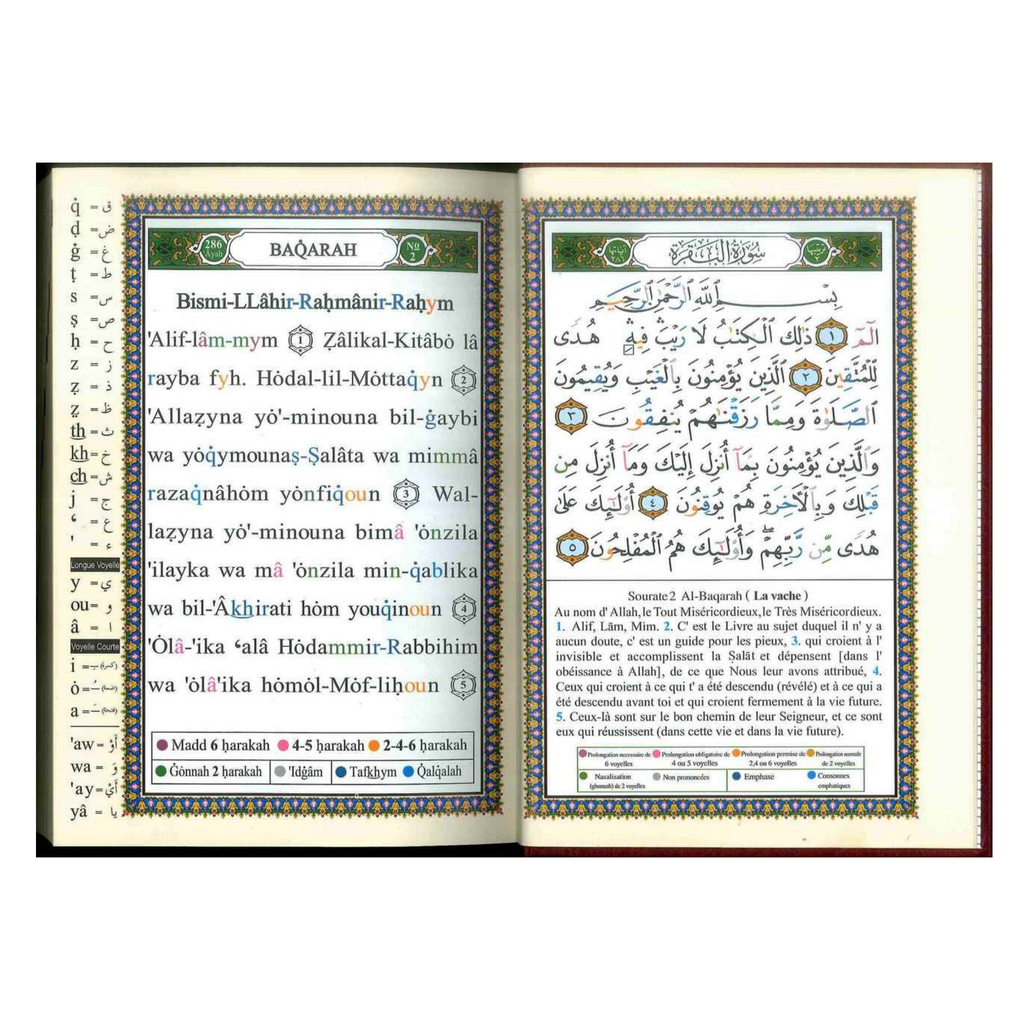 q̇ = ق
ḍ = ض
ġ = غ
ṭ = ط
s = س
ṣ = ص
ḥ = ح
z = ز
ẓ = ذ
ẓ = ظ
th = ث
kh = خ
ch = ش
j = ج
‘ = ع
' = ء
Longue Voyelle
y = ي
ou = و
â = ا
Voyelle Courte
i = (كسرة)
ȯ = (ضمة)
a = (فتحة)
'aw = أَوْ
wa = وَ
'ay = أَيْ
yâ = يا
286 Ayah
BAQ̇ARAH
No 2
Bismi-LLâhir-Raḥmânir-Raḥym
'Alif-lâm-mym 1 Ẓâlikal-Kitâbȯ lâ
rayba fyh. Hȯdal-lil-Mȯttaq̇yn 2
'Allaẓyna yȯ'-minouna bil-ġaybi
wa yȯq̇ymounaṣ-Ṣalâta wa mimmâ
razaq̇nâhȯm yȯnfiq̇oun 3 Wal-
laẓyna yȯ'-minouna bimâ 'ȯnzila
'ilayka wa mâ 'ȯnzila min-q̇ablika
wa bil-'Âkhirati hȯm youq̇inoun 4
'Ȯlâ-'ika ‘alâ Hȯdammir-Rabbihim
wa 'ȯlâ'ika hȯmȯl-Mȯf-liḥoun 5
Madd 6 ḥarakah 4-5 ḥarakah 2-4-6 ḥarakah
Ġȯnnah 2 ḥarakah 'Idġâm Tafkhym Q̇alq̇alah
سُورَةُ البَقَرَة
بِسْمِ ٱللَّهِ ٱلرَّحْمَٰنِ ٱلرَّحِيمِ
الٓمٓ ١ ذَٰلِكَ ٱلْكِتَٰبُ لَا رَيْبَ ۛ فِيهِ ۛ هُدًى
لِّلْمُتَّقِينَ ٢ ٱلَّذِينَ يُؤْمِنُونَ بِٱلْغَيْبِ وَيُقِيمُونَ
ٱلصَّلَوٰةَ وَمِمَّا رَزَقْنَٰهُمْ يُنفِقُونَ ٣
وَٱلَّذِينَ يُؤْمِنُونَ بِمَآ أُنزِلَ إِلَيْكَ وَمَآ أُنزِلَ مِن
قَبْلِكَ وَبِٱلْآخِرَةِ هُمْ يُوقِنُونَ ٤ أُو۟لَٰٓئِكَ عَلَىٰ
هُدًى مِّن رَّبِّهِمْ ۖ وَأُو۟لَٰٓئِكَ هُمُ ٱلْمُفْلِحُونَ ٥
Sourate 2 Al-Baqarah ( La vache )
Au nom d' Allah, le Tout Miséricordieux, le Très Miséricordieux.
1. Alif, Lām, Mim. 2. C' est le Livre au sujet duquel il n' y a
aucun doute, c' est un guide pour les pieux, 3. qui croient à l'
invisible et accomplissent la Ṣalāt et dépensent [dans l'
obéissance à Allah], de ce que Nous leur avons attribué, 4.
Ceux qui croient à ce qui t' a été descendu (révélé) et à ce qui a
été descendu avant toi et qui croient fermement à la vie future.
5. Ceux-là sont sur le bon chemin de leur Seigneur, et ce sont
eux qui réussissent (dans cette vie et dans la vie future).
Prolongation necessaire de 6 voyelles
Prolongation obligatoire de 4 ou 5 voyelles
Prolongation permise de 2,4 ou 6 voyelles
Prolongation normale de 2 voyelles
Nasalisation (ghunnah) de 2 voyelles
Non prononcées
Emphase
Consonnes emphatiques